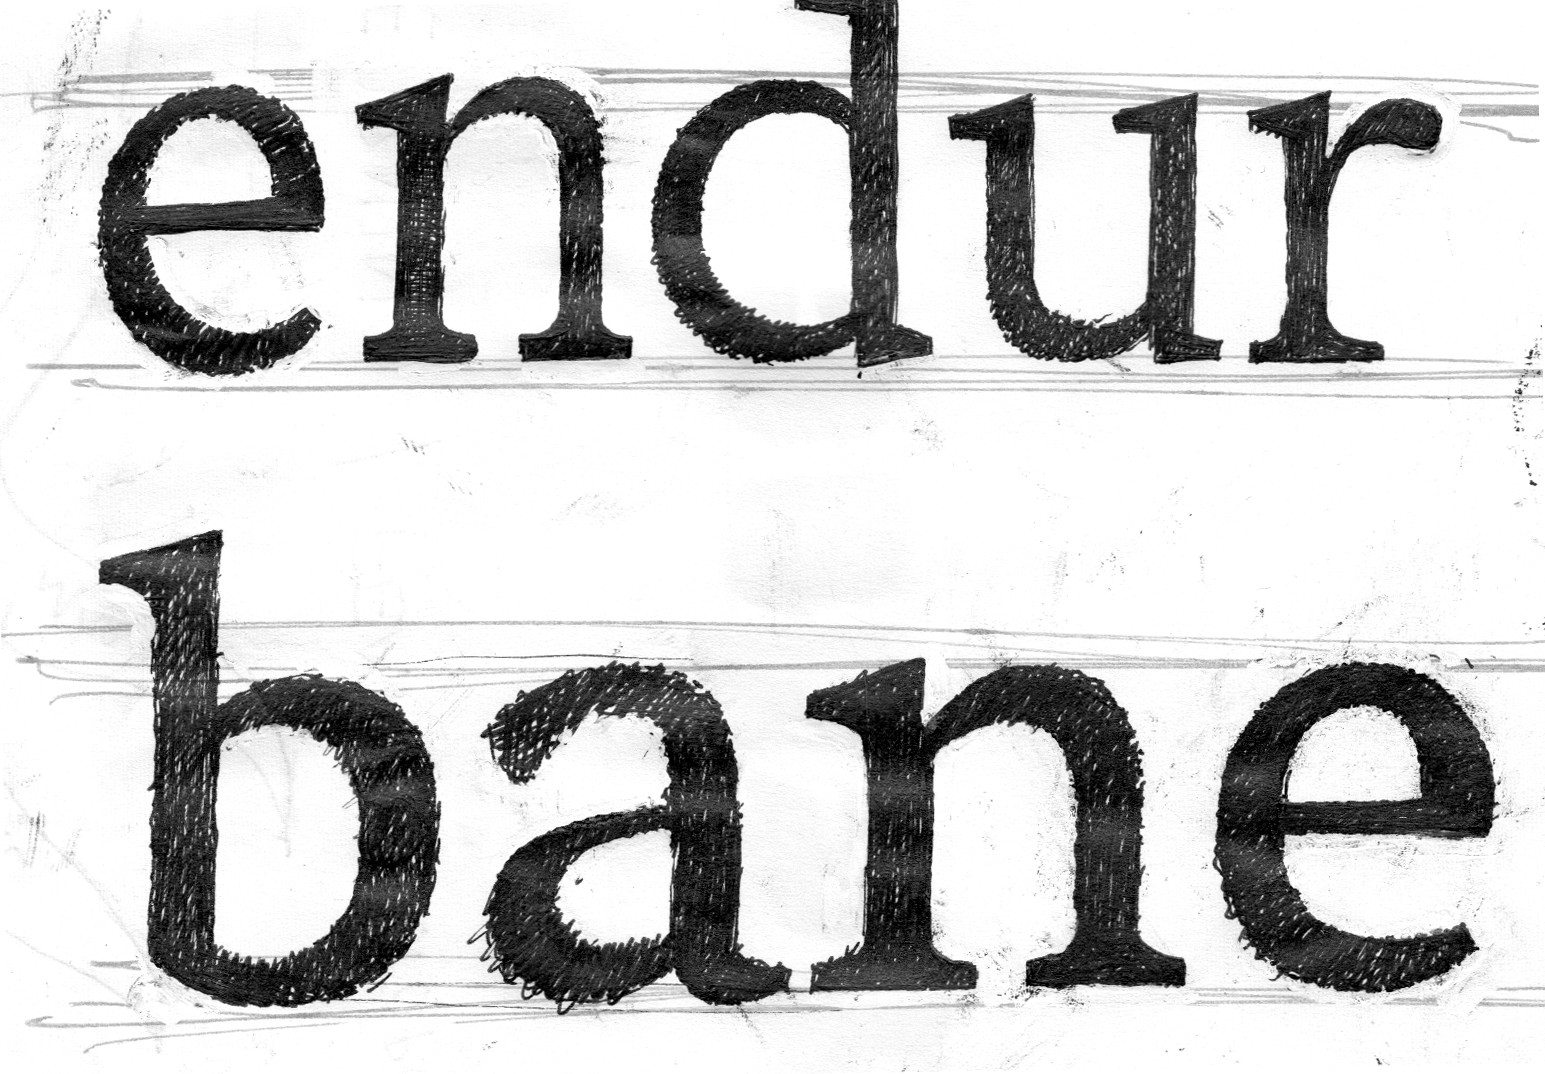 endur
bane